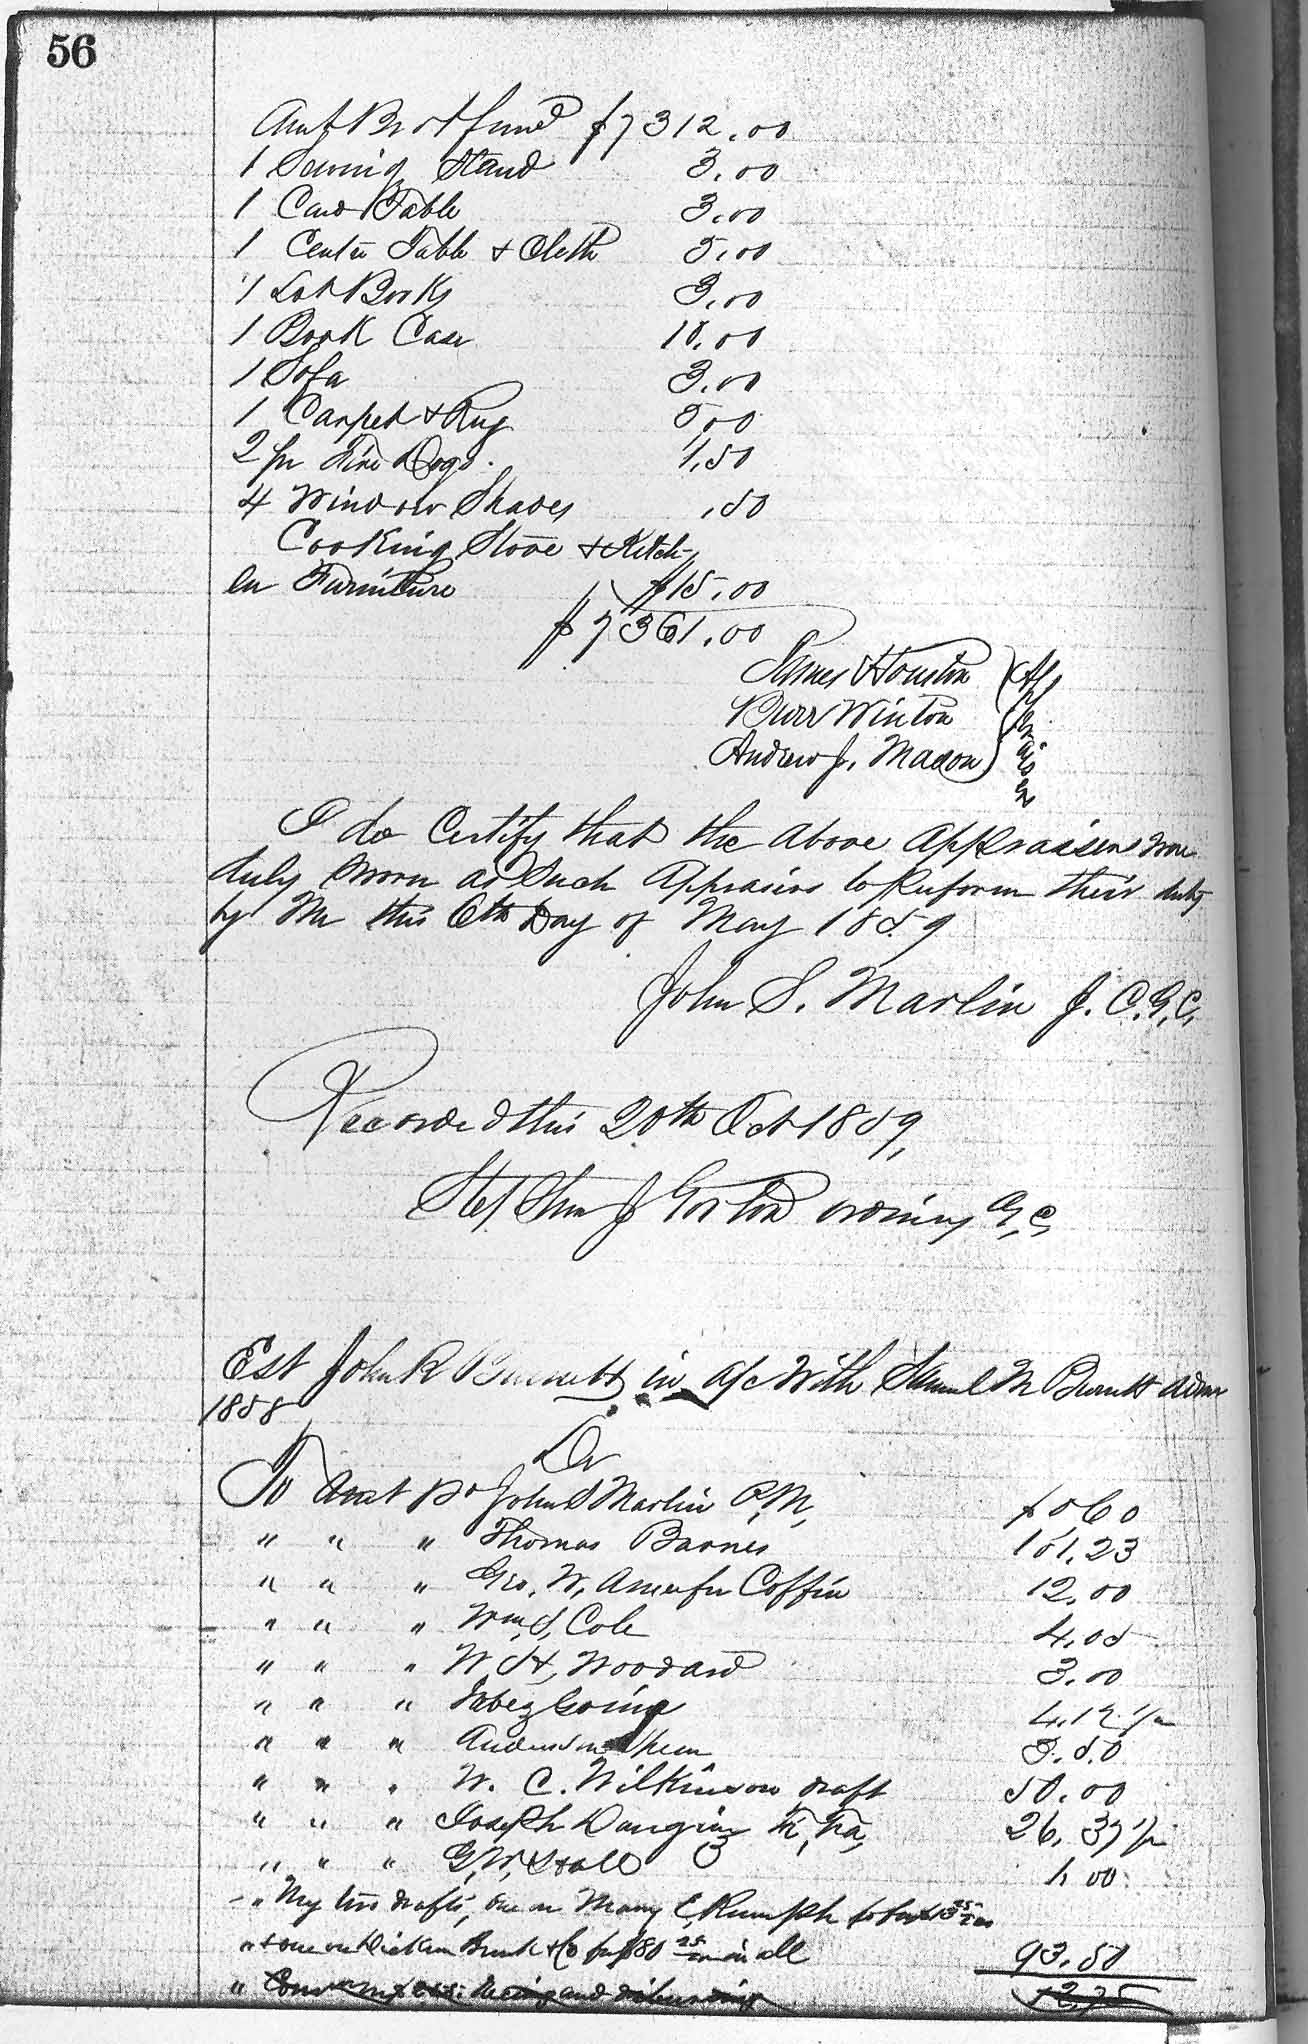 56
Amt Brot forwd $7312.00
1 Sewing Stand 3.00
1 Card Table 3.00
1 Center Table & Cloth 5.00
1 Lot Books 3.00
1 Book Case 10.00
1 Sofa 3.00
1 Carpet & Rug 5.00
2 pr Fire Dogs. 1.50
4 Window Shades .50
Cooking Stove & Kitch-
en Furniture $15.00
$7361.00
James Houston
Burr Winton
Andrew J. Mason
Appraisers
I do Certify that the above Appraisers were
duly sworn as Such Appraisers to Perform their duty
by Me this 6th Day of May 1859
John S. Marlin J. C. G. C.
Recorded this 20th Oct 1859,
Stephen J Gorton ordinary G, C,
Est John R Burnett in a/c With Samuel M Burnett Admr
1858
Dr
To Amt pd John S Marlin P.M, $0,60
" " " Thomas Barnes 151.23
" " " Geo. W, for Coffin 12.00
" " " Wm, S, Cole 4.05
" " " W. H, Woodard 3.00
" " " Jabez Goins 4.12 1/2
" " " Anderson 3.50
" " " W. C. Wilkinson draft 50.00
" " " Joseph 26.37 1/2
" " " G, W, Hall 1.00
" My two drafts, one on C, Rumph for
" & one on & Co for $80 25/100 in all 93.50
" and disbursing 12,75